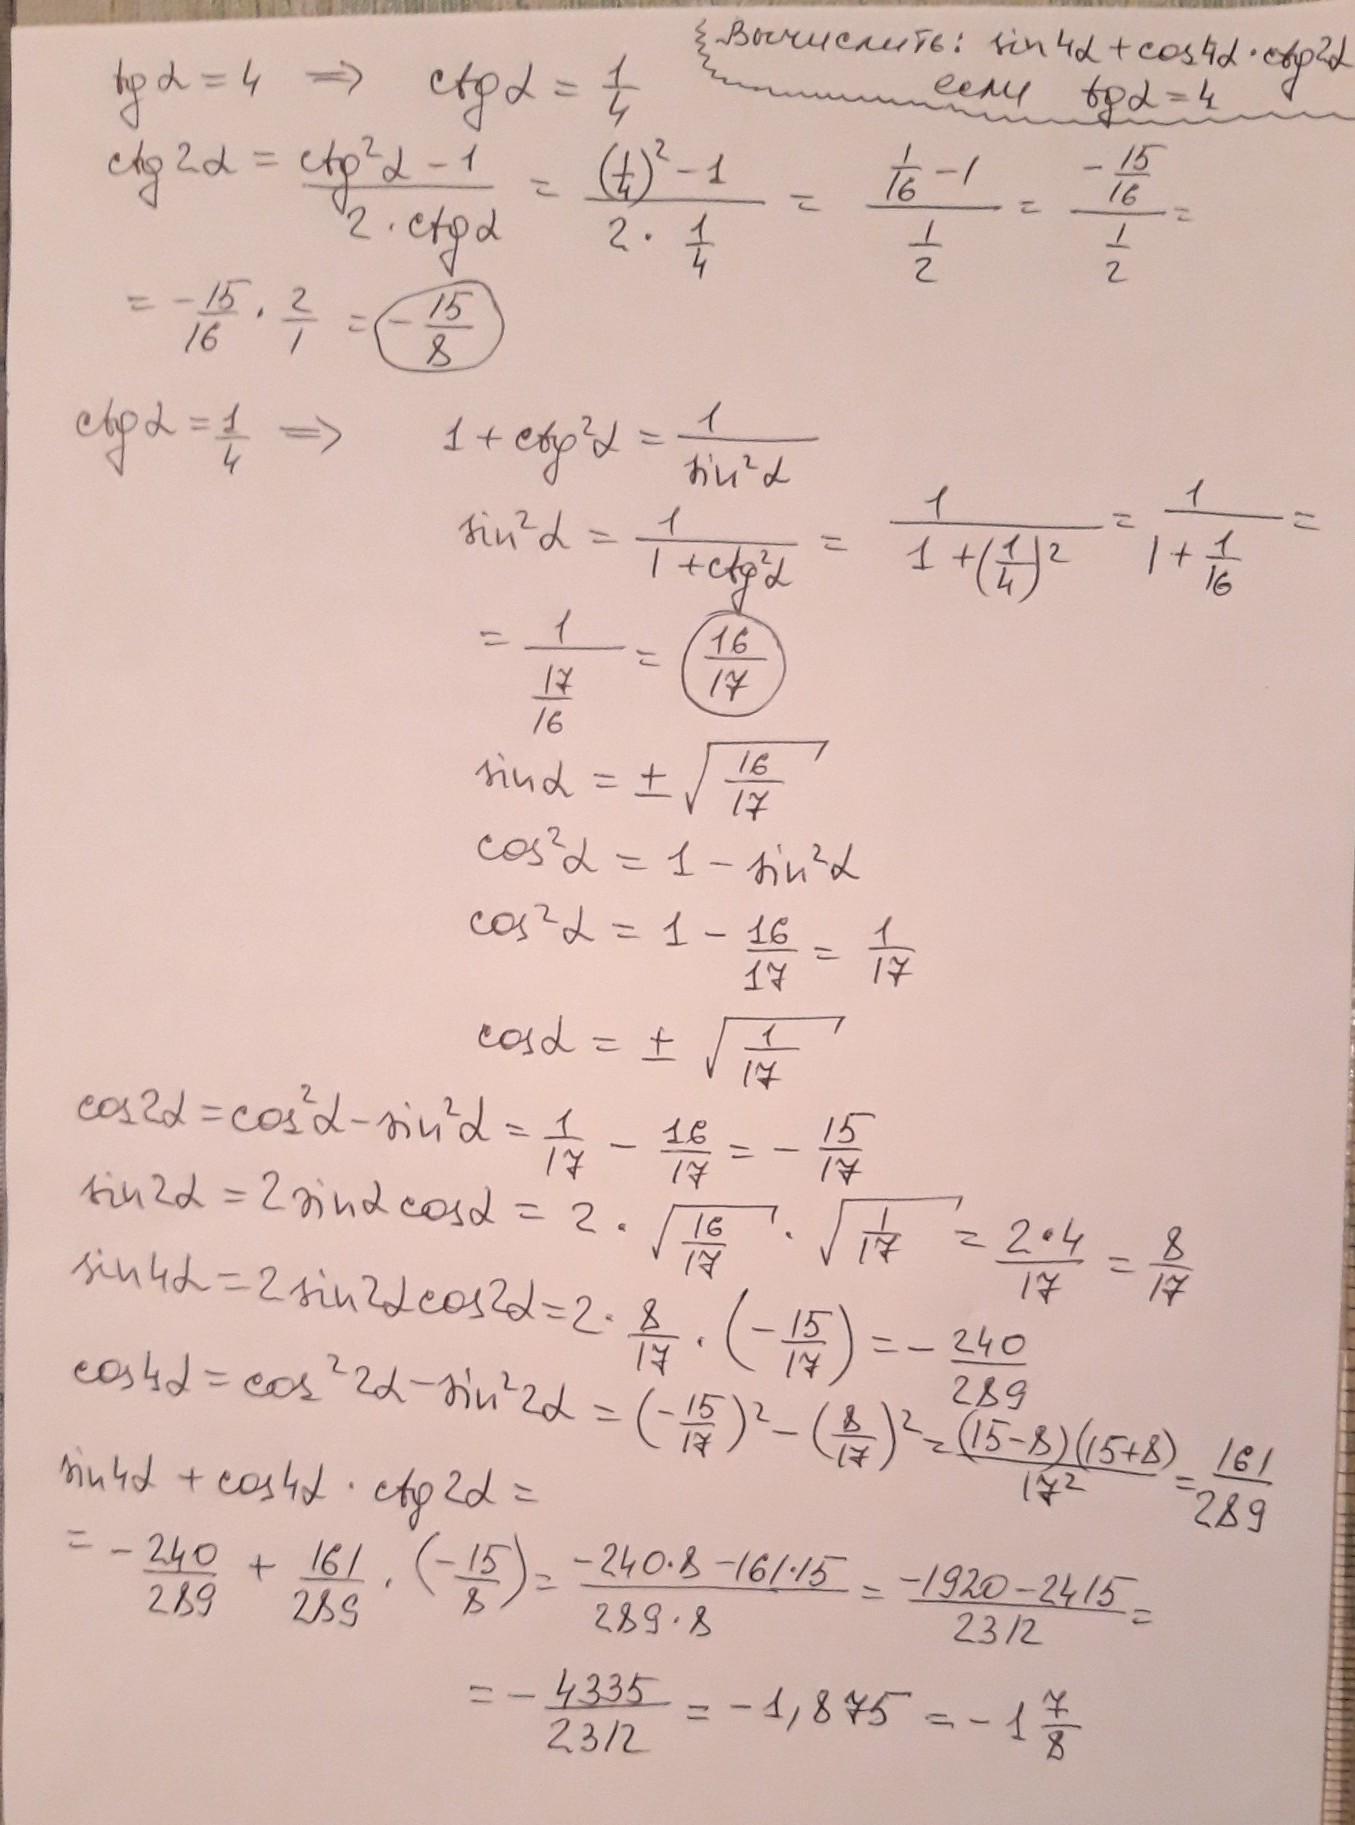 Вычислить: sin4α + cos4α · ctg2α
если tgα = 4
tgα = 4 ⇒ ctgα = 1/4
ctg2α = (ctg²α - 1)/(2 · ctgα) = ((1/4)² - 1)/(2 · 1/4) = (1/16 - 1)/(1/2) = (-15/16)/(1/2) =
= -15/16 · 2/1 = -15/8
ctgα = 1/4 ⇒ 1 + ctg²α = 1/sin²α
sin²α = 1/(1 + ctg²α) = 1/(1 + (1/4)²) = 1/(1 + 1/16) =
= 1/(17/16) = 16/17
sinα = ± √(16/17)
cos²α = 1 - sin²α
cos²α = 1 - 16/17 = 1/17
cosα = ± √(1/17)
cos2α = cos²α - sin²α = 1/17 - 16/17 = - 15/17
sin2α = 2 sinα cosα = 2 · √(16/17) · √(1/17) = (2·4)/17 = 8/17
sin4α = 2 sin2α cos2α = 2 · 8/17 · (-15/17) = - 240/289
cos4α = cos²2α - sin²2α = (-15/17)² - (8/17)² = ((15-8)(15+8))/17² = 161/289
sin4α + cos4α · ctg2α =
= - 240/289 + 161/289 · (-15/8) = (-240·8 - 161·15)/(289·8) = (-1920 - 2415)/2312 =
= - 4335/2312 = -1,875 = -1 7/8